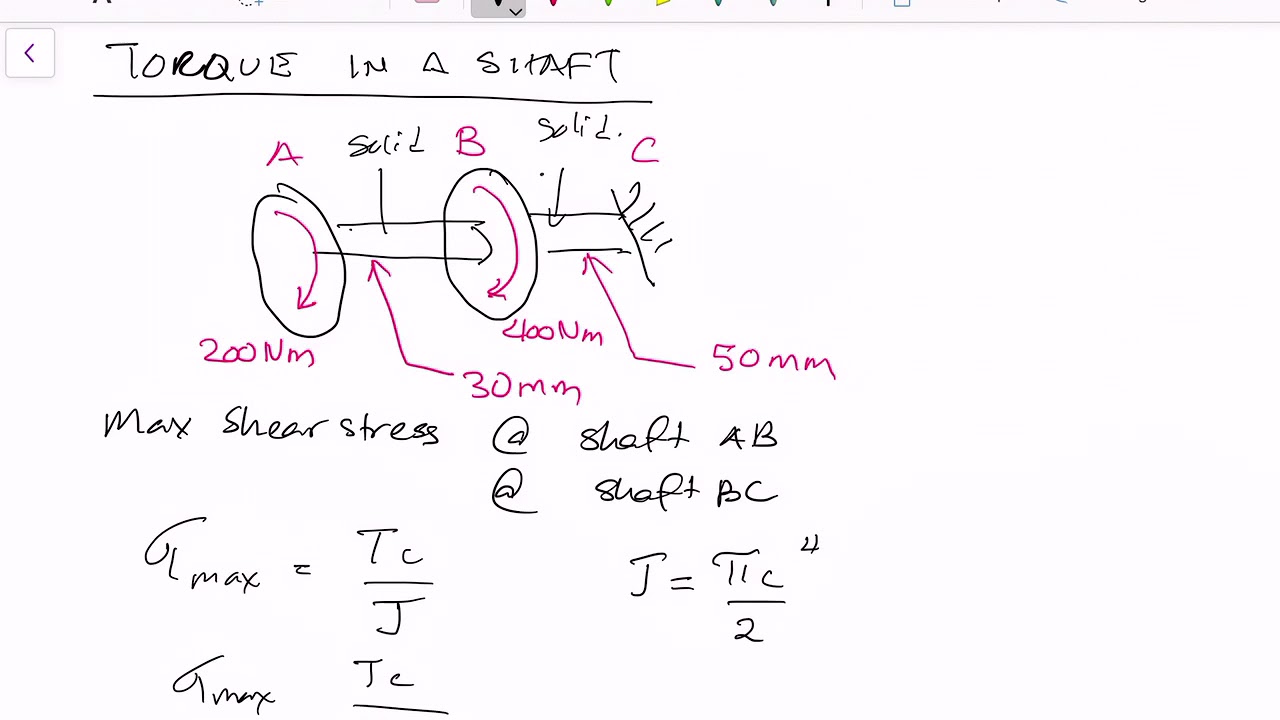 TORQUE IN A SHAFT
A solid B solid. C
200Nm 400Nm 50mm
30mm
Max shear stress @ shaft AB
@ shaft BC
τmax = Tc/J J = πc⁴/2
τmax Tc